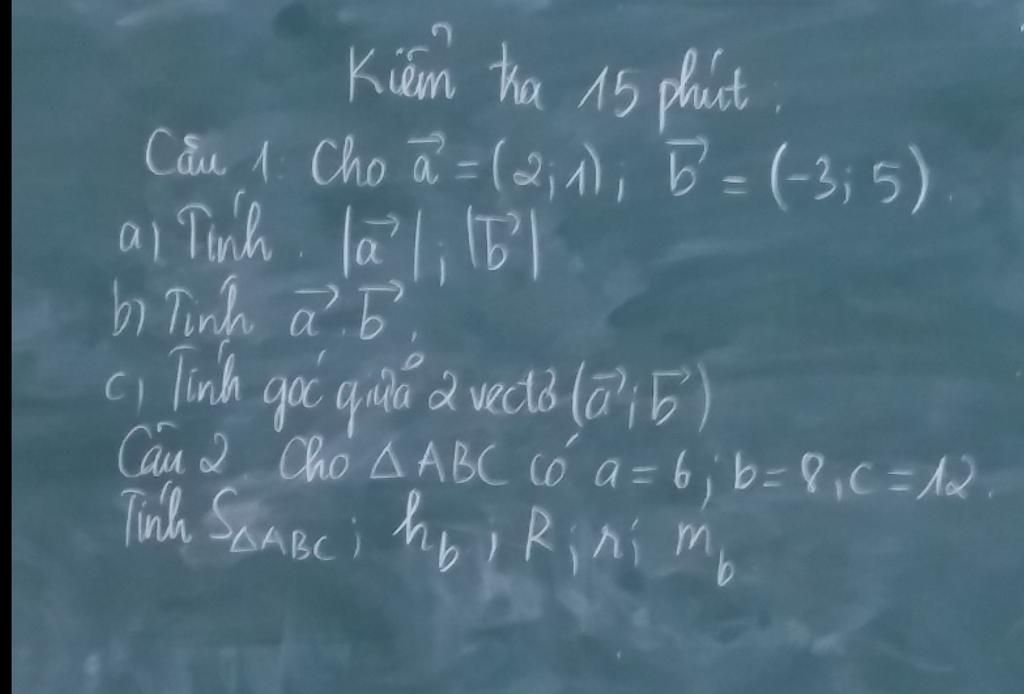 Kiểm tra 15 phút.
Câu 1: Cho a⃗ = (2; 1); b⃗ = (-3; 5).
a) Tính. |a⃗|; |b⃗|
b) Tính a⃗.b⃗.
c) Tính góc giữa 2 vectơ (a⃗; b⃗)
Câu 2. Cho △ABC có a = 6; b = 8; c = 12.
Tính S△ABC; hb, R; r; mb